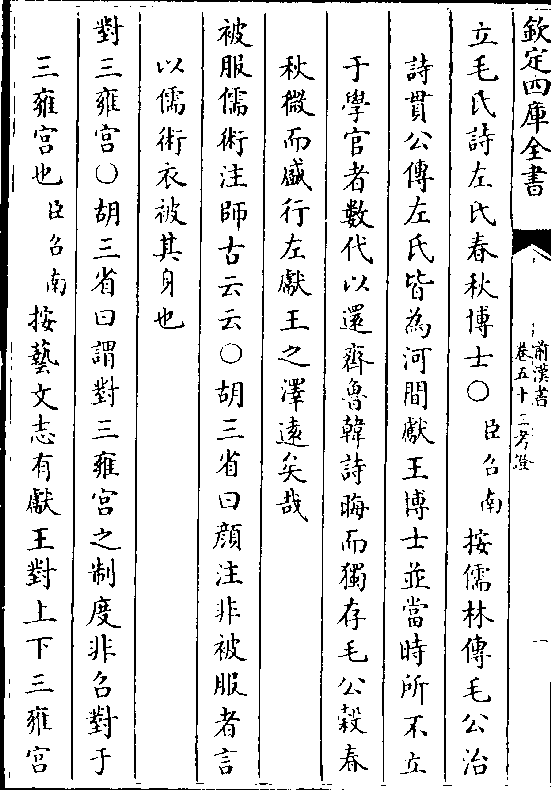 欽定四庫全書
前漢書
卷五十三考證
一
立毛氏詩左氏春秋博士○臣召南按儒林傳毛公治
詩貫公傳左氏皆為河間獻王博士並當時所不立
于學官者數代以還齊魯韓詩晦而獨存毛公穀春
秋微而盛行左獻王之澤遠矣哉
被服儒術注師古云云○胡三省曰顔注非被服者言
以儒術衣被其身也
對三雍宫○胡三省曰謂對三雍宫之制度非召對于
三雍宫也臣召南按藝文志有獻王對上下三雍宫